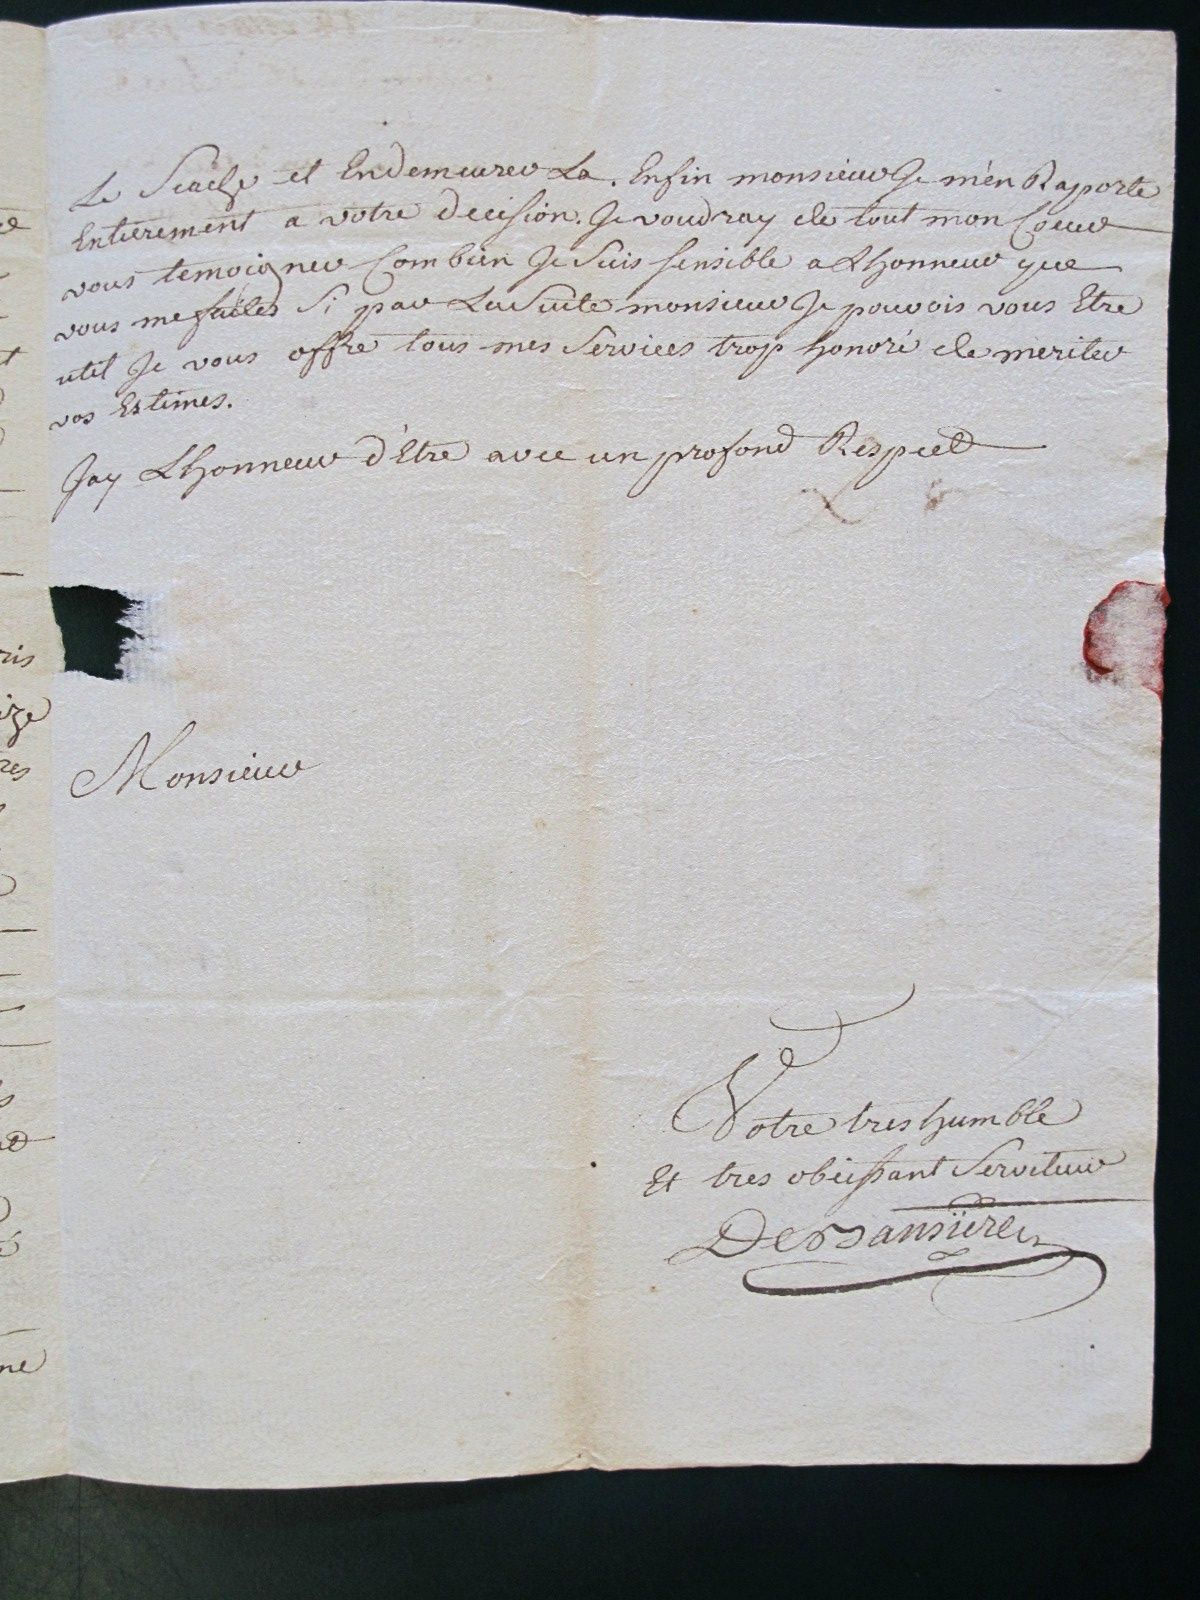 Le et Endemeurer La. Enfin monsieur Je m'en Raporte
Entierement a votre decision. Je voudray de tout mon Coeur
vous temoigner Combien Je suis sensible a Lhonneur que
vous me faites Si par La Suite monsieur Je pouvois vous Etre
util Je vous offre tous mes Services trop honoré de meriter
vos Estimes.
Jay Lhonneur d'Etre avec un profond Respect
Monsieur
Votre tres humble
Et tres obeissant Serviteur